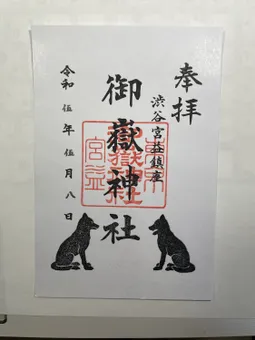 奉拝
渋谷宮益鎮座
御嶽神社
令和伍年伍月八日